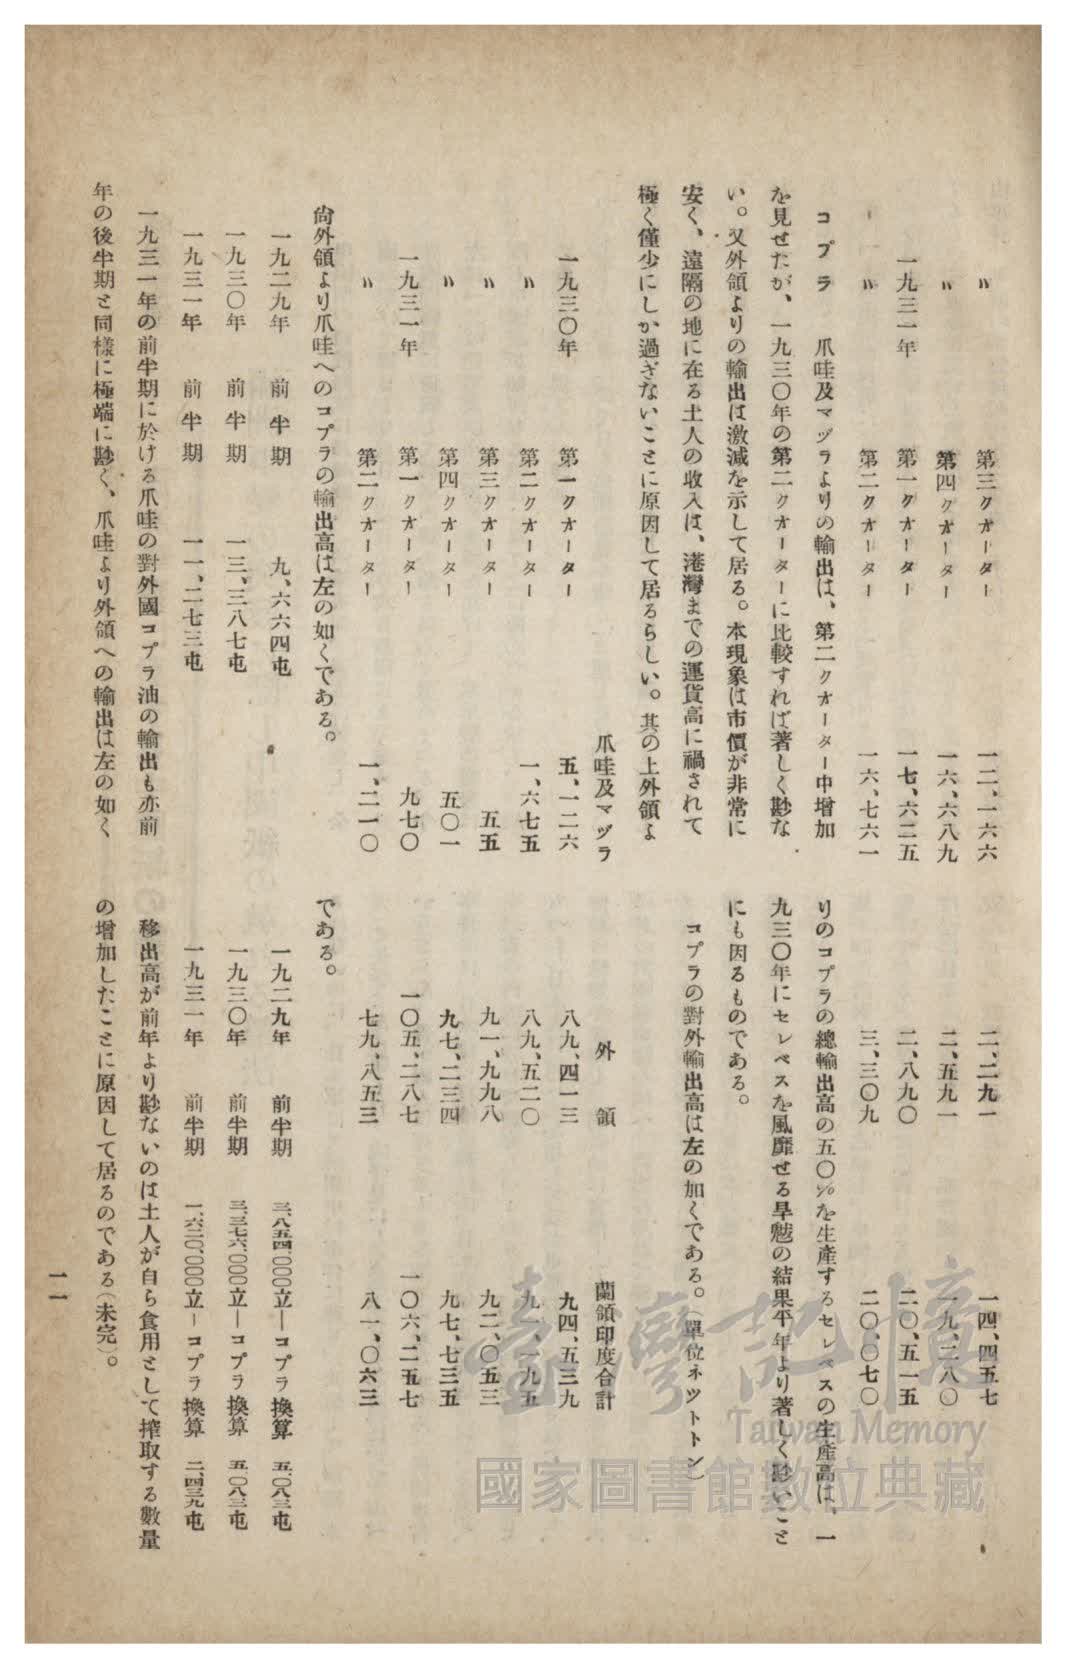 〃　第三クオーター　一二、一六六　二、二九一　一四、四五七
〃　第四クオーター　一六、六八九　二、五九一　一九、二八〇
一九三一年　第一クオーター　一七、六二五　二、八九〇　二〇、五一五
〃　第二クオーター　一六、七六一　三、三〇九　二〇、〇七〇
コプラ　爪哇及マヅラよりの輸出は、第二クオーター中增加
を見せたが、一九三〇年の第二クオーターに比較すれば著しく尠な
い。又外領よりの輸出は激減を示して居る。本現象は市價が非常に
安く、遠隔の地に在る土人の收入は、港灣までの運貨高に禍されて
極く僅少にしか過ぎないことに原因して居るらしい。其の上外領よ
りのコプラの總輸出高の五〇%を生産するセレベスの生産高は、一
九三〇年にセレベスを風靡せる旱魃の結果平年より著しく尠いこと
にも因るものである。
コプラの對外輸出高は左の加くである。（單位ネツトトン）
爪哇及マヅラ　外領　蘭領印度合計
一九三〇年　第一クオーター　五、一二六　八九、四一三　九四、五三九
〃　第二クオーター　一、六七五　八九、五二〇　九一、一九五
〃　第三クオーター　五五　九一、九九八　九二、〇五三
〃　第四クオーター　五〇一　九七、二三四　九七、七三五
一九三一年　第一クオーター　九七〇　一〇五、二八七　一〇六、二五七
〃　第二クオーター　一、二一〇　七九、八五三　八一、〇六三
尙外領より爪哇へのコプラの輸出高は左の如くである。
一九二九年　前半期　九、六六四屯
一九三〇年　前半期　一三、三八七屯
一九三一年　前半期　一一、二七三屯
一九三一年の前半期に於ける爪哇の對外國コプラ油の輸出も亦前
年の後半期と同樣に極端に尠く、爪哇より外領への輸出は左の如く
である。
一九二九年　前半期　三、八五四、〇〇〇立―コプラ換算　五、〇八三屯
一九三〇年　前半期　三、三七六、〇〇〇立―コプラ換算　五、〇八三屯
一九三一年　前半期　一、六二〇、〇〇〇立―コプラ換算　二、四三九屯
移出高が前年より尠ないのは土人が自ら食用として搾取する數量
の增加したことに原因して居るのである（未完）。
一一
臺灣記憶
Taiwan Memory
國家圖書館數位典藏